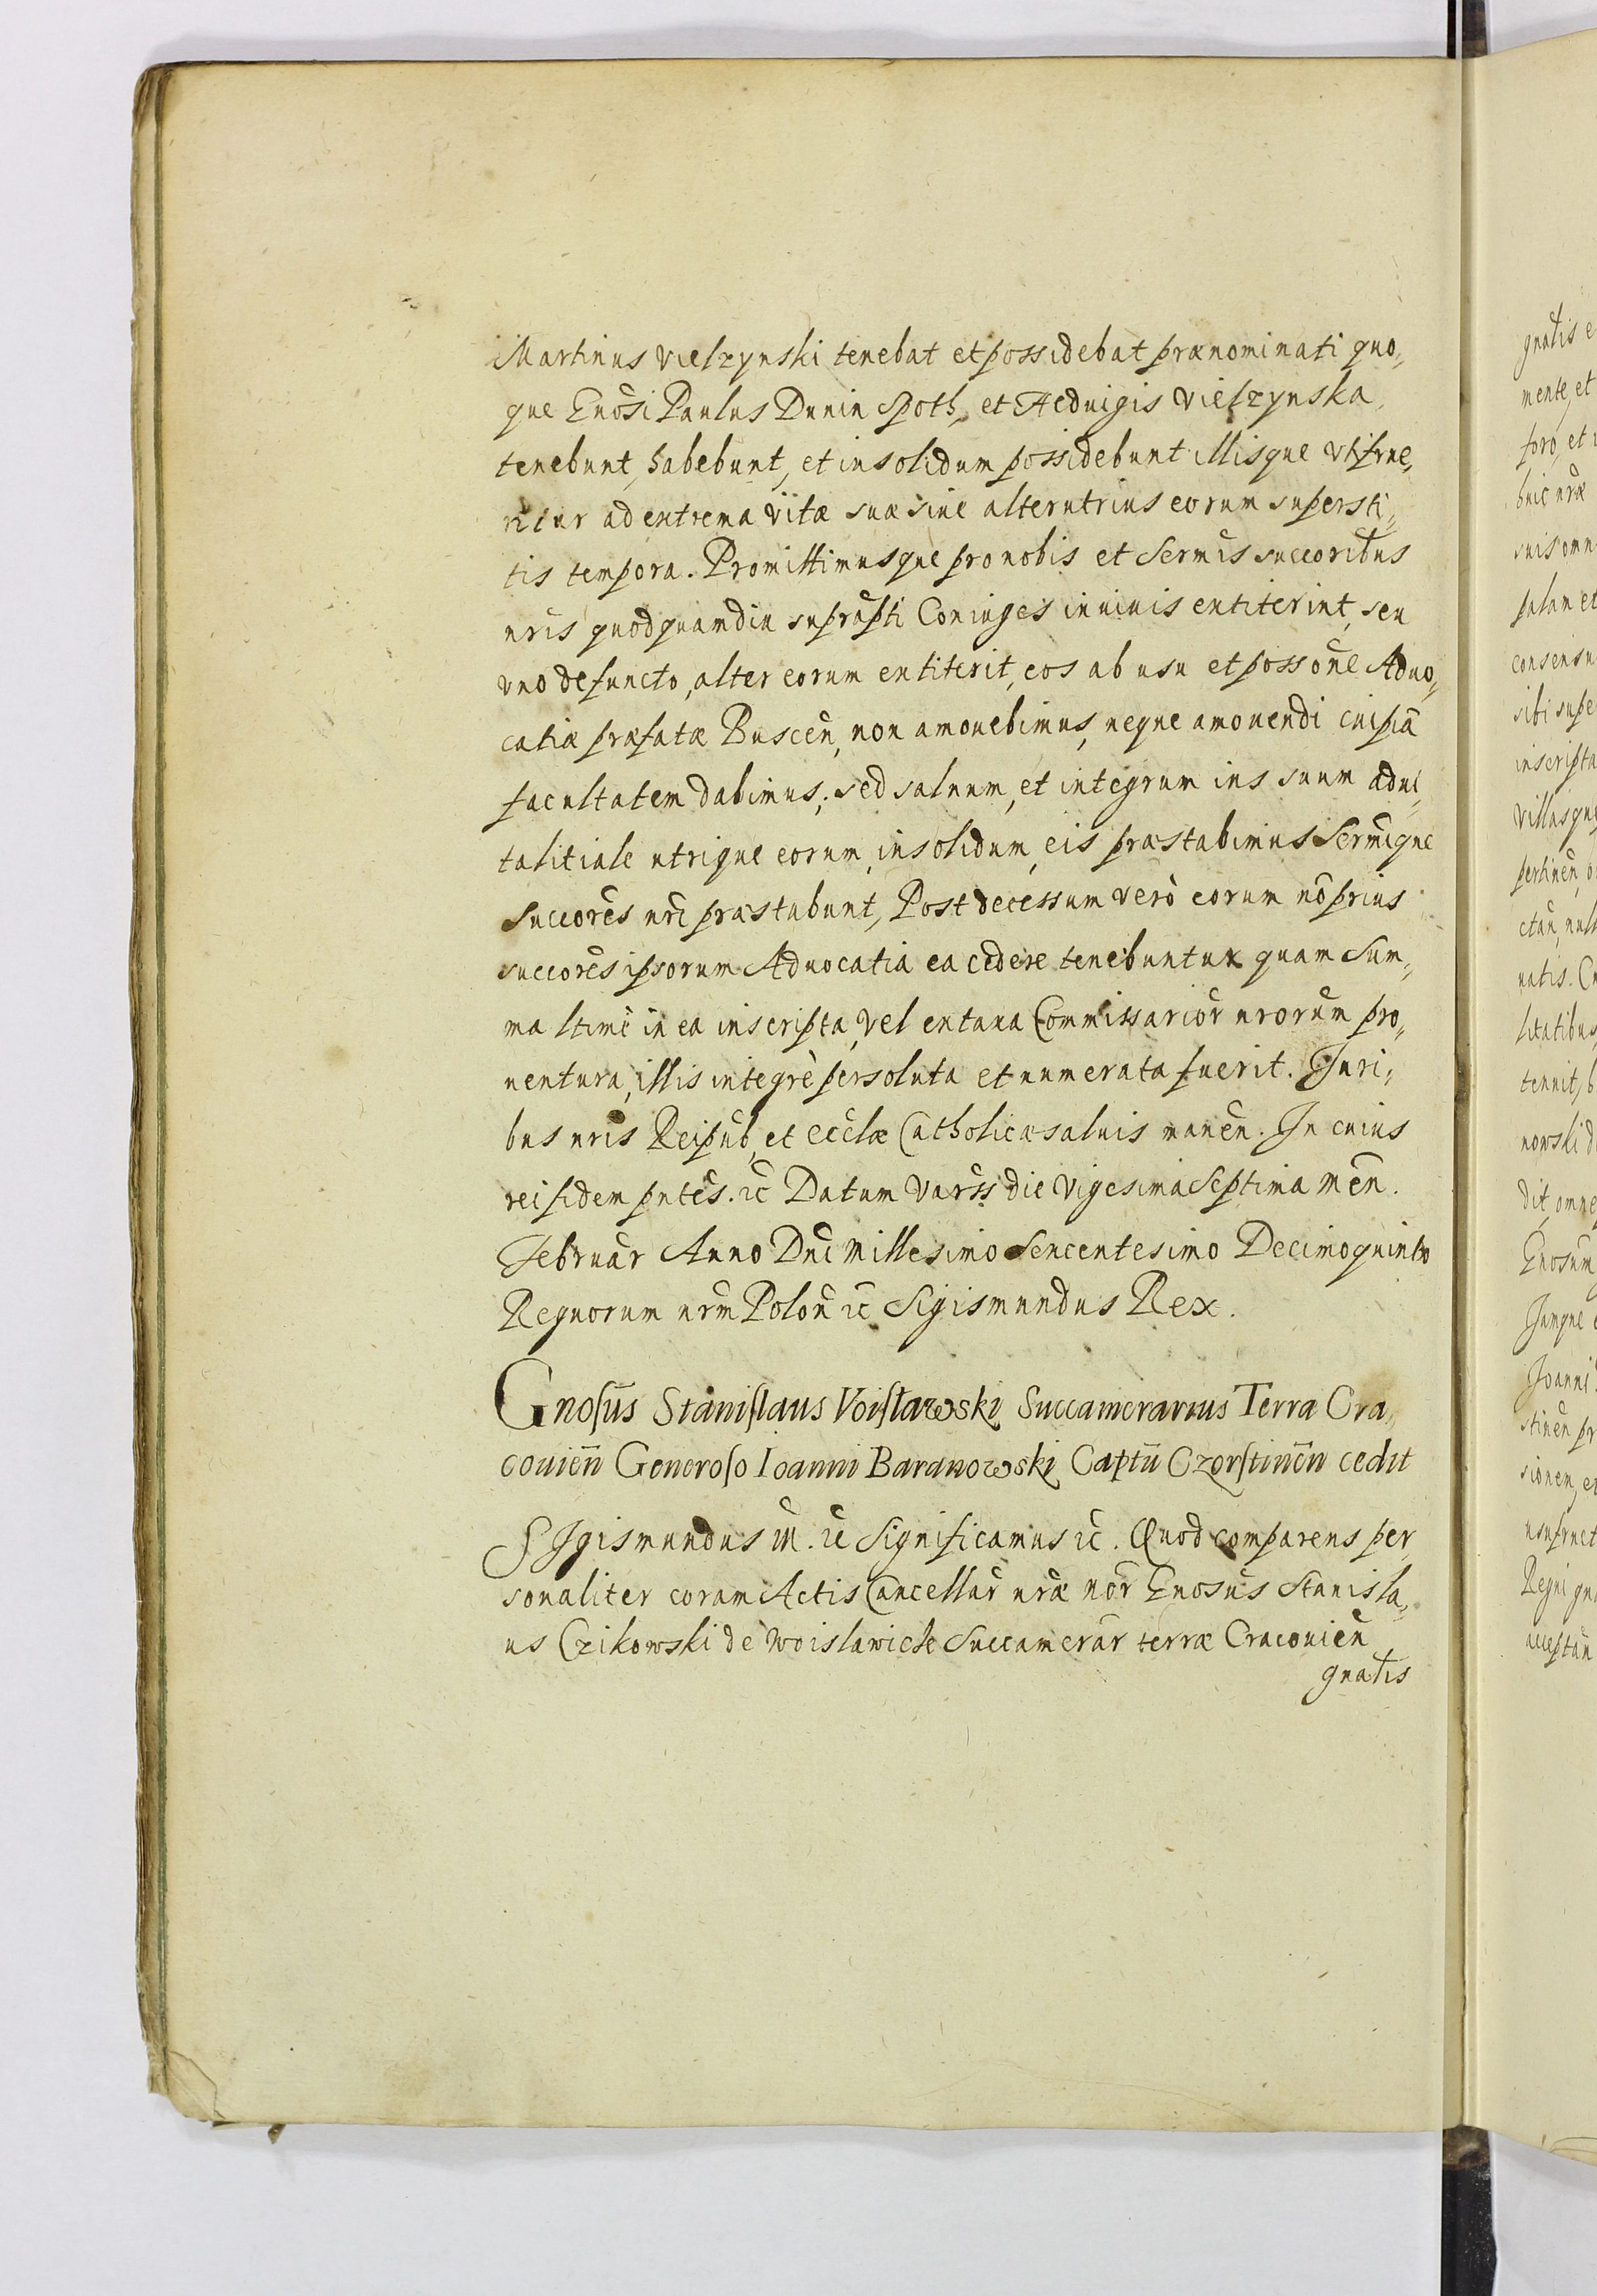 Martinus Vielzynski tenebat et possidebat prænominati quo„
que Gnosi Paulus Dunin Spoth, et Hedvigis Vielzynska,
tenebunt, habebunt, et insolidum possidebunt illisque Vtifrue„
ntur ad extrema Vitæ suæ siue alterutrius eorum supersti„
tis tempora. Promittimusque pro nobis et Sermis succoribus
nris quodquamdiu suprapti Coniuges in uiuis extiterint, seu
vno defuncto, alter eorum extiterit, eos ab usu et possone Aduo„
catiæ præfatæ Buscen, non amouebimus, neque amouendi cuipiã
facultatem dabimus; sed saluum, et integrum ius suum adui„
talitiale utrique eorum, insolidum, eis præstabimus Sermique
Succores nri præstabunt, Post decessum verò eorum nõ prius
succores ipsorum Aduocatia ea cedere tenebuntur quam Sum„
ma ltimè in ea inscripta, vel ex taxa Commissarior nrorum pro„
uentura, illis integrè persoluta et numerata fuerit. Iuri„
bus nris Reipub, et Ecclæ Catholicæ saluis manen. In cuius
rei fidem pntes. ꝛc Datum Varss die Vigesima Septima men.
Februar Anno Dni Millesimo Sexcentesimo Decimoquinto
Regnorum nrm Polon ꝛc Sigismundus Rex.
Gnoſus Staniſlaus Voiſławski Succamerarius Terra Cra„
couien Generoſo Ioanni Baranowski Captu Czorſtinen cedit
SIgismundus III. ꝛc Significamus ꝛc. Quod comparens per„
sonaliter coram Actis Cancellar nræ nor Gnosus Stanisla„
us Czikowski de Woislawicze Succamerar terræ Cracouien
gnatis
gnatis e
mente, et
foro, et
huic nræ
suis omn
palam et
consensu
sibi supe
inscripta
Villasque
pertinen,
ctan, null
natis. C
litatibus
tenuit, b
nowski d
dit, omne
Gnosum
Iamque
Ioanni
stinen pr
sionem, e
usufruct
Regni
acceptan